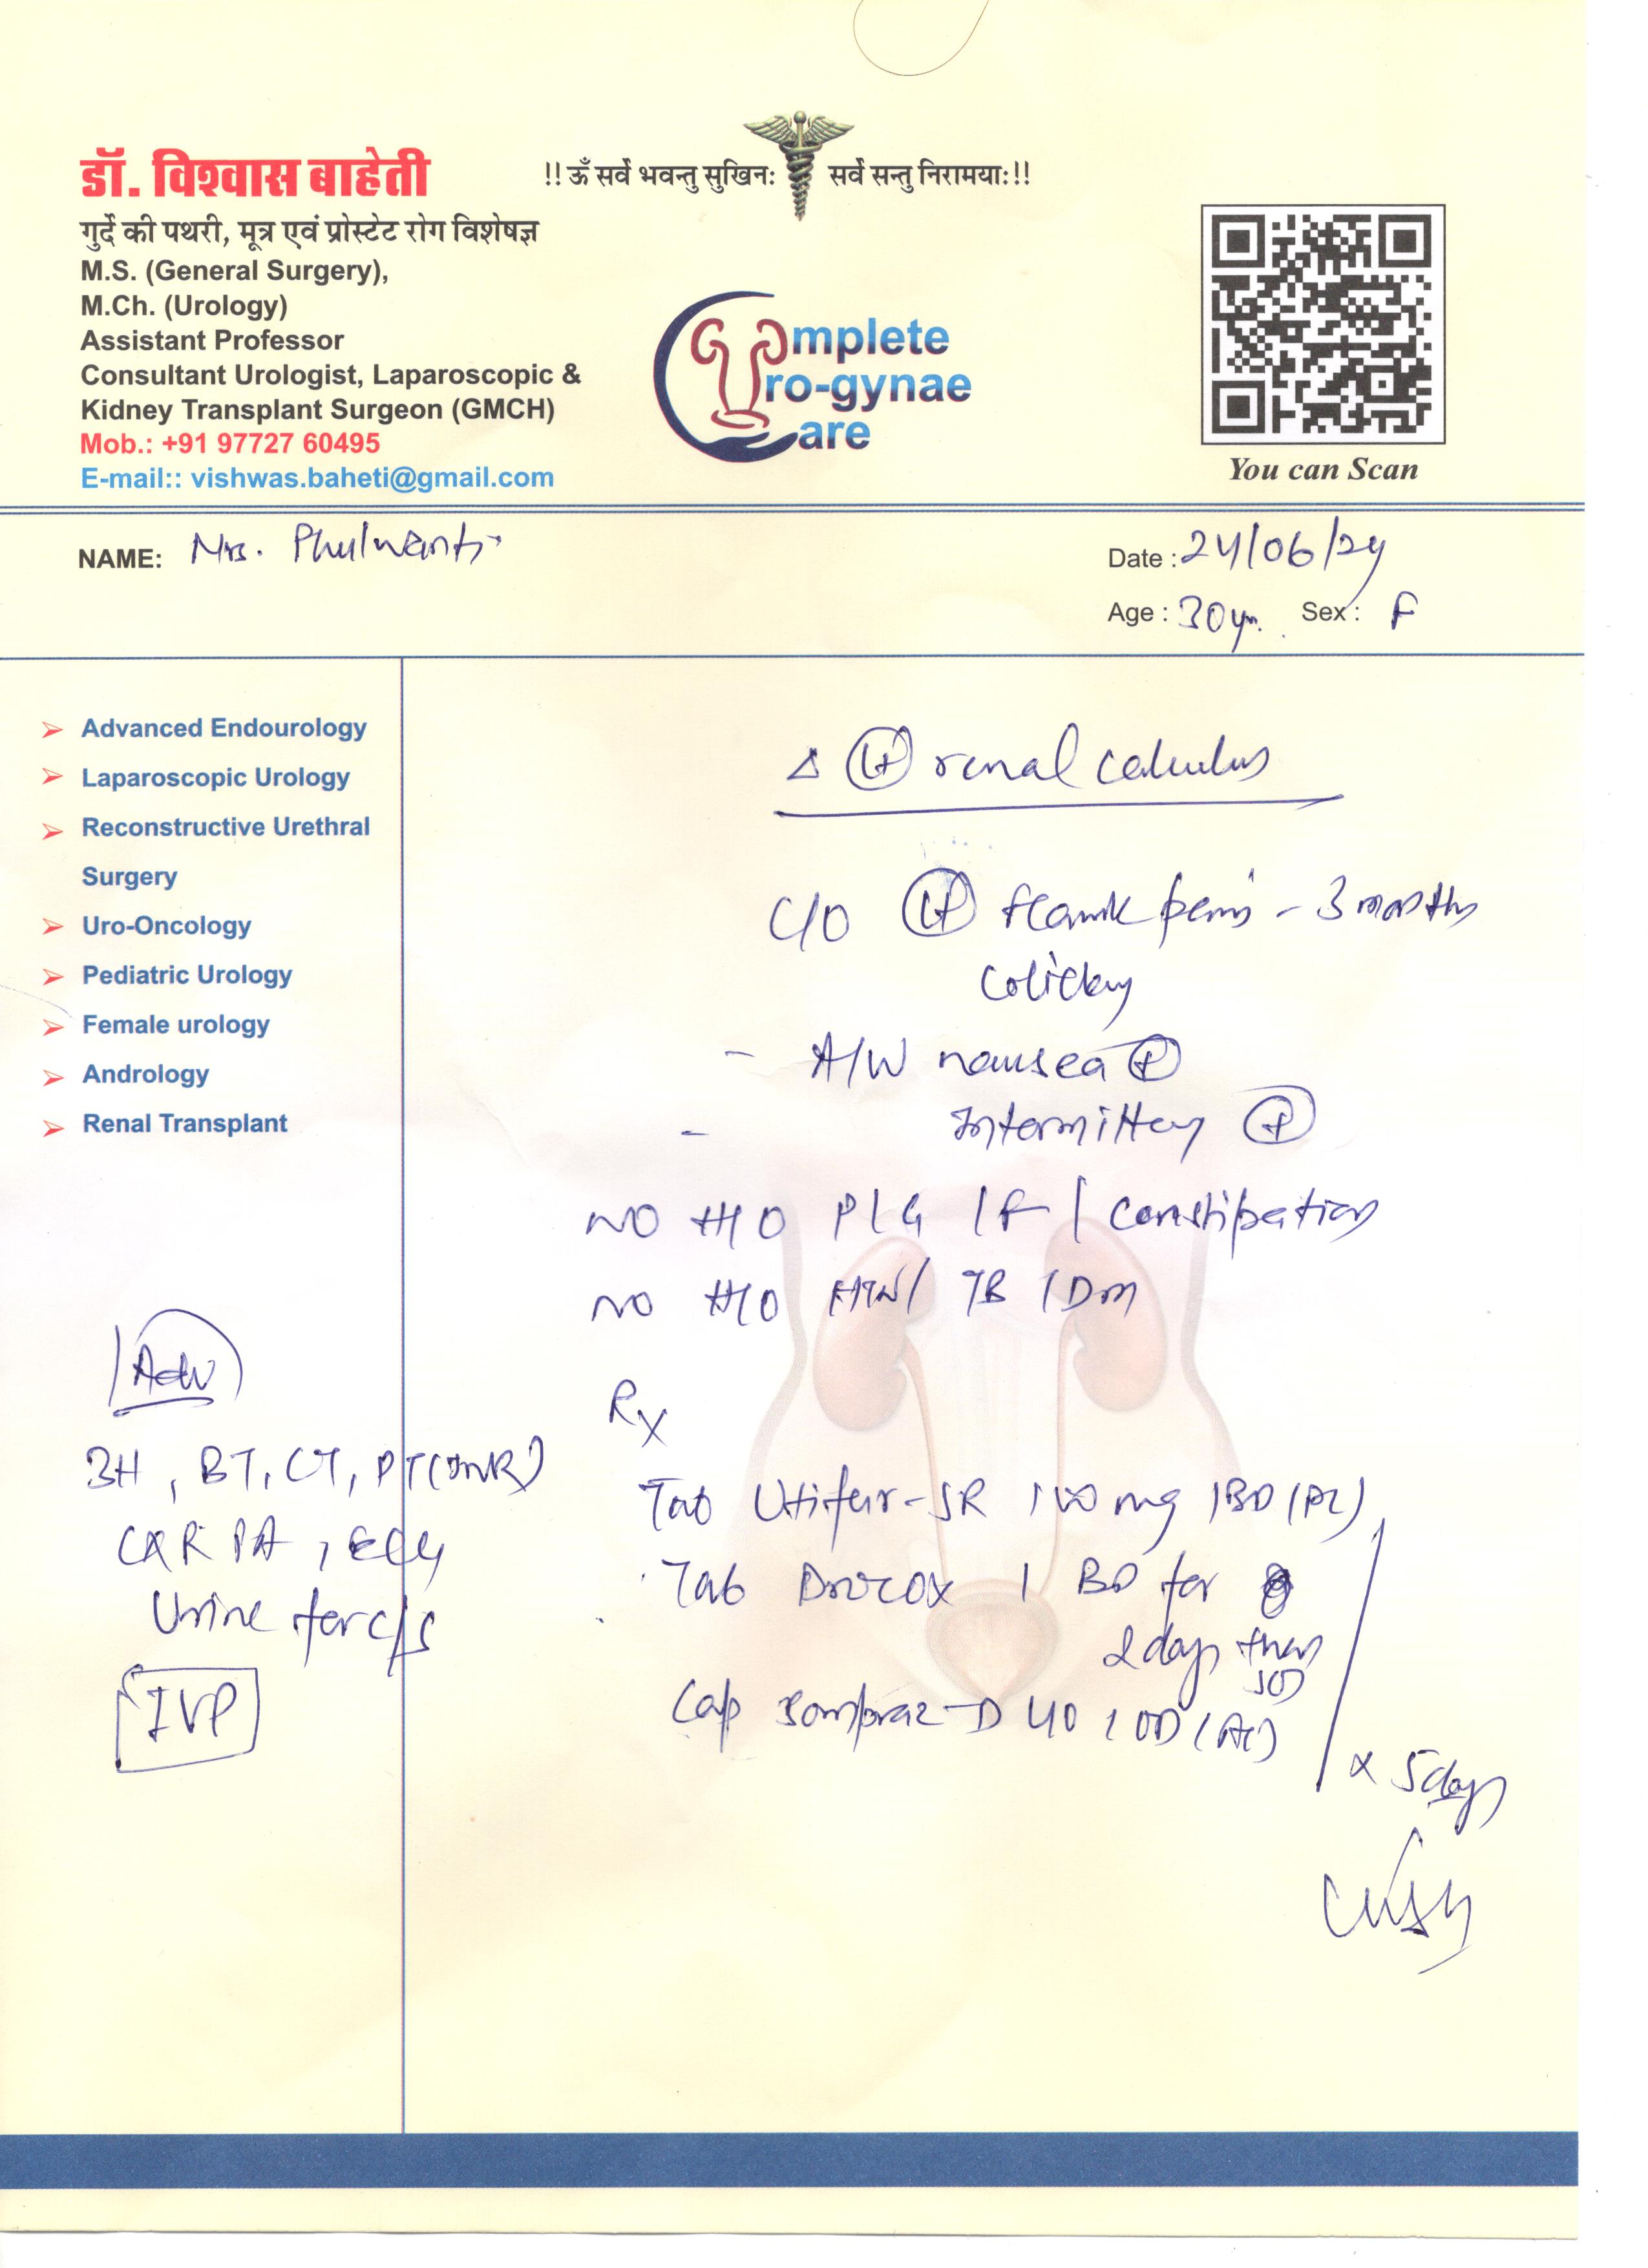 !! ॐ सर्वे भवन्तु सुखिनः सर्वे सन्तु निरामयाः !!
डॉ. विश्वास बाहेती
गुर्दे की पथरी, मूत्र एवं प्रोस्टेट रोग विशेषज्ञ
M.S. (General Surgery),
M.Ch. (Urology)
Assistant Professor
Consultant Urologist, Laparoscopic &
Kidney Transplant Surgeon (GMCH)
Mob.: +91 97727 60495
E-mail:: vishwas.baheti@gmail.com
Complete
Uro-gynae
Care
You can Scan
NAME: Mrs. Phulwanti
Date : 24/06/24
Age : 30 yr. Sex : F
Advanced Endourology
Laparoscopic Urology
Reconstructive Urethral
Surgery
Uro-Oncology
Pediatric Urology
Female urology
Andrology
Renal Transplant
Δ (Lt) renal calculus
C/O (Lt) flank pain - 3 months
colicky
- A/W nausea (+)
- Intermittency (+)
NO H/O P/G/F/constipation
NO H/O HTN/TB/DM
Rx
Tab Utifur-SR 100 mg 1 BD
Tab 1 BD for
2 days then
SOS
Cap Sompraz-D 40 1 OD (AC)
x 5 days
Adv
BH, BT, CT, PT(INR)
CXR PA, ECG
Urine for c/s
IVP